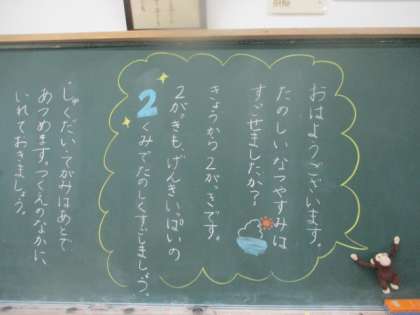 おはようございます。
たのしいなつやすみは
すごせましたか?
きょうから2がっきです。
2がっきも、げんきいっぱいの
2くみでたのしくすごしましょう。
しゅくだい、てがみはあとで
あつめます。つくえのなかに、
いれておきましょう。